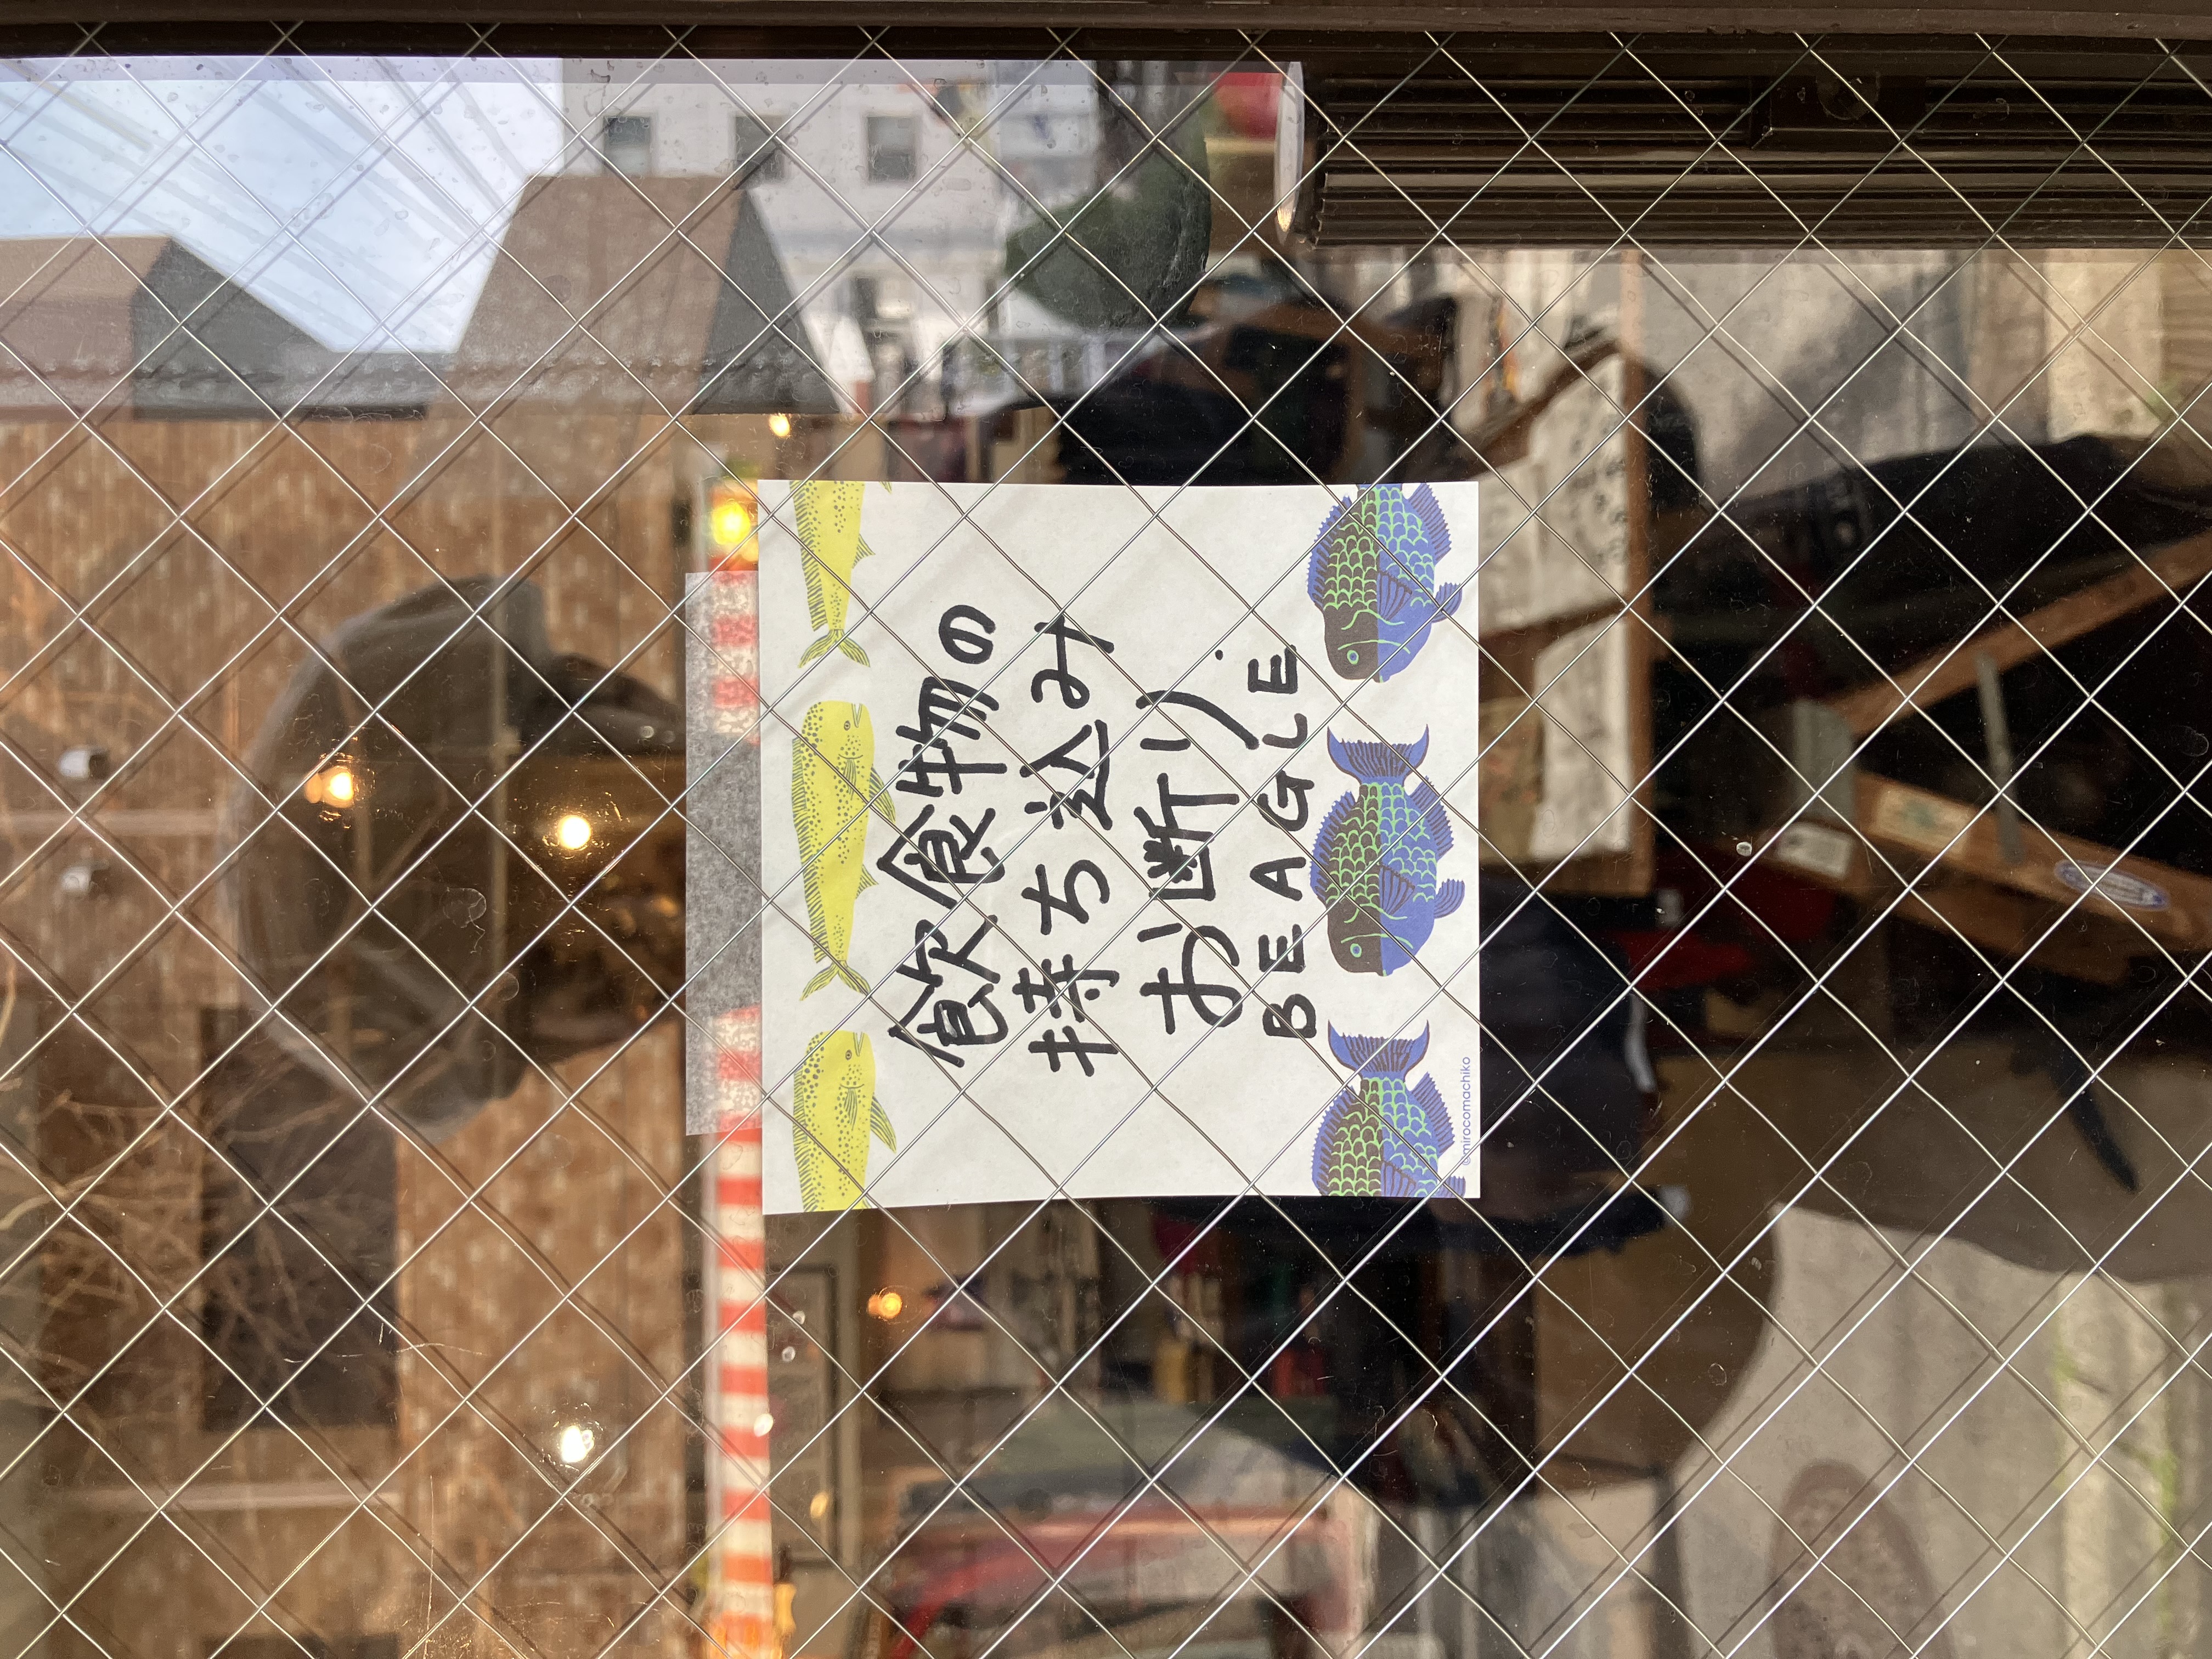 飲食物の
持ち込み
お断り
BEAGLE
©mirocomachiko